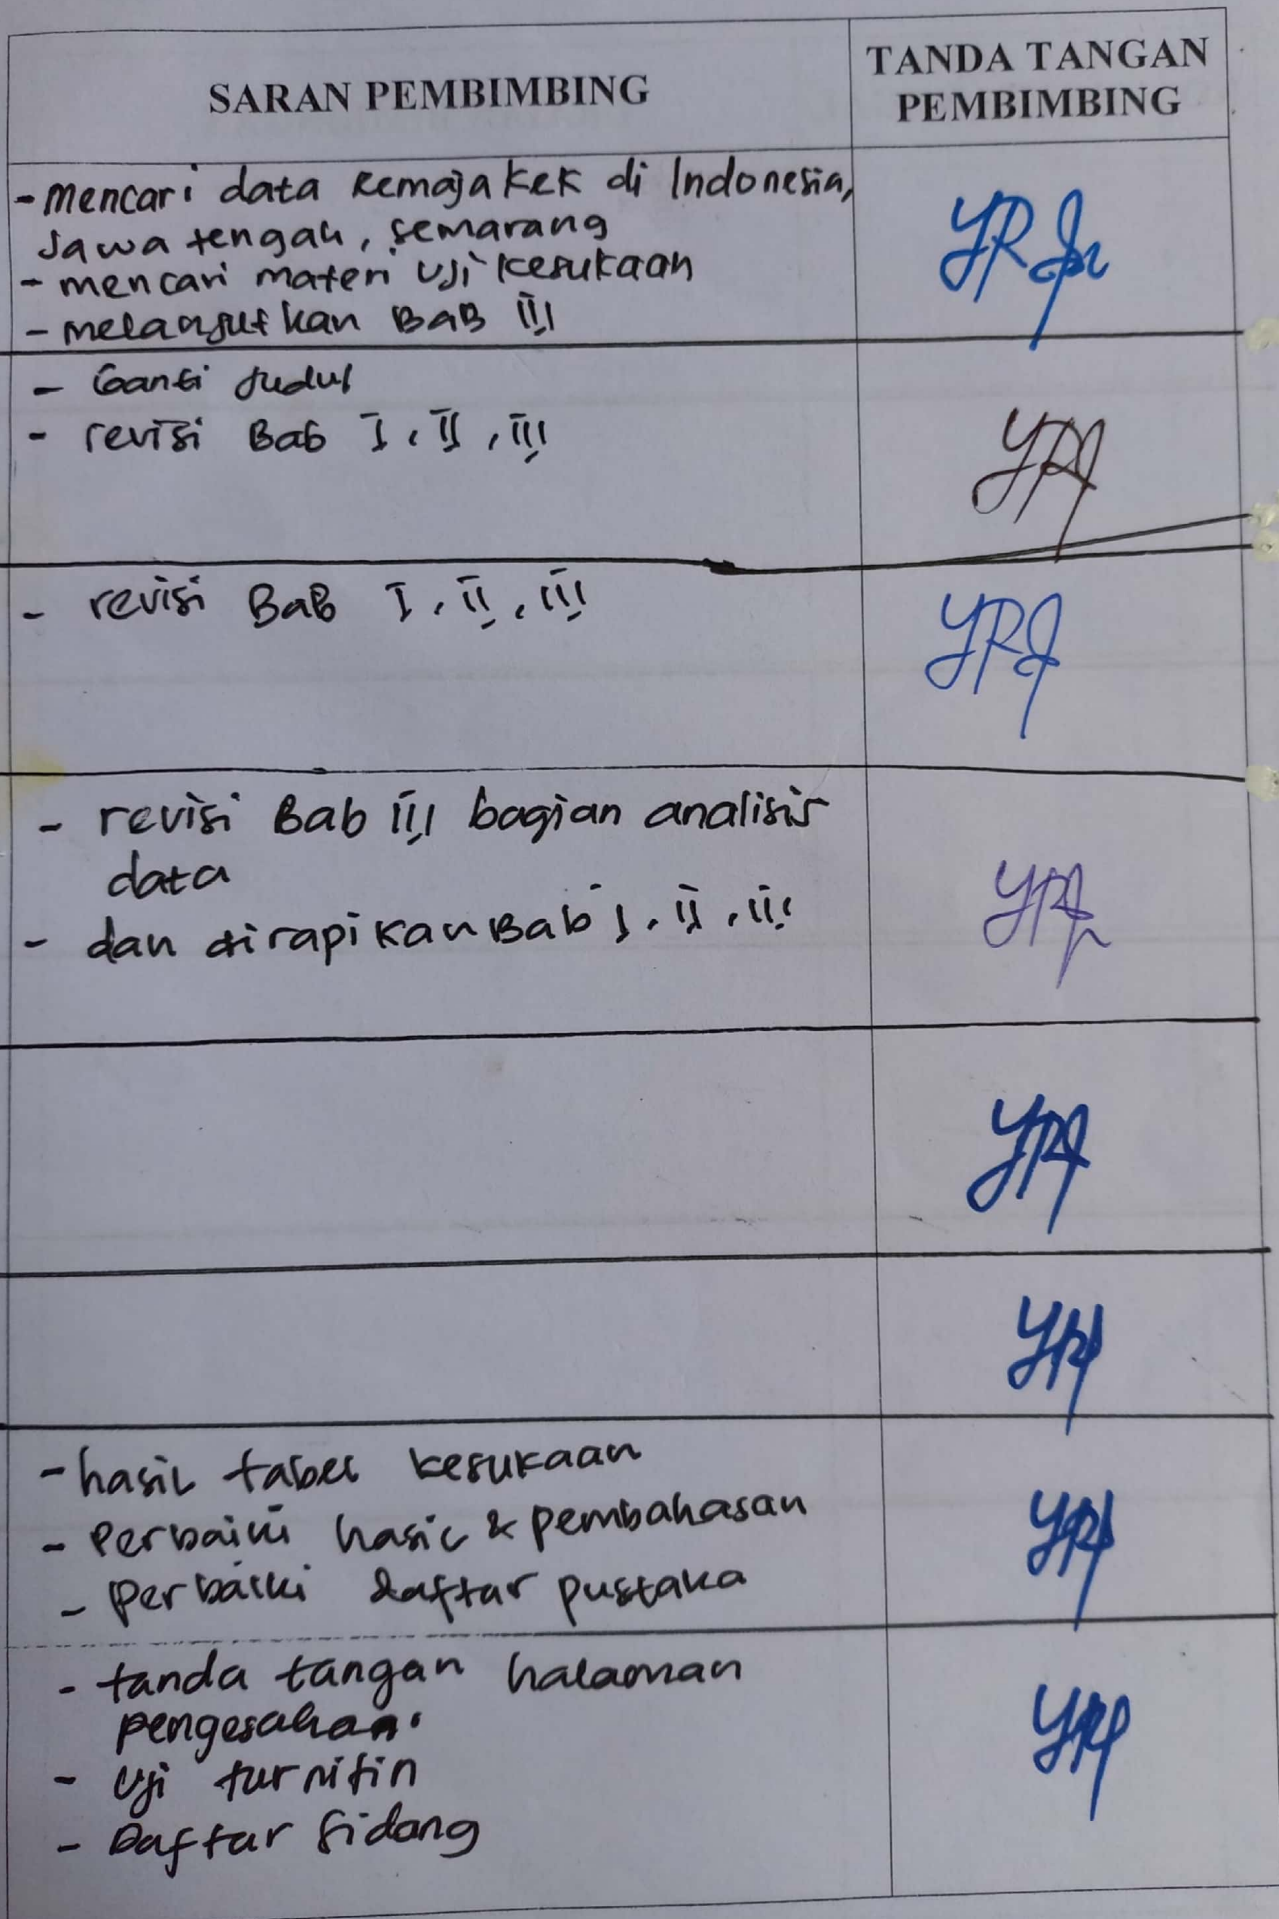 SARAN PEMBIMBING
TANDA TANGAN
PEMBIMBING
- mencari data remaja KEK di Indonesia,
Jawa tengah, Semarang
- mencari materi Uji kesukaan
- melanjutkan BAB III
- Ganti Judul
- revisi Bab I, II, III
- revisi BaB I, II, III
- revisi Bab III bagian analisis
data
- dan dirapikan Bab I, II, III
- hasil tabel kesukaan
- Perbaiki hasil & pembahasan
- Perbaiki daftar pustaka
- tanda tangan halaman
pengesahan.
- Uji turnitin
- Daftar Sidang